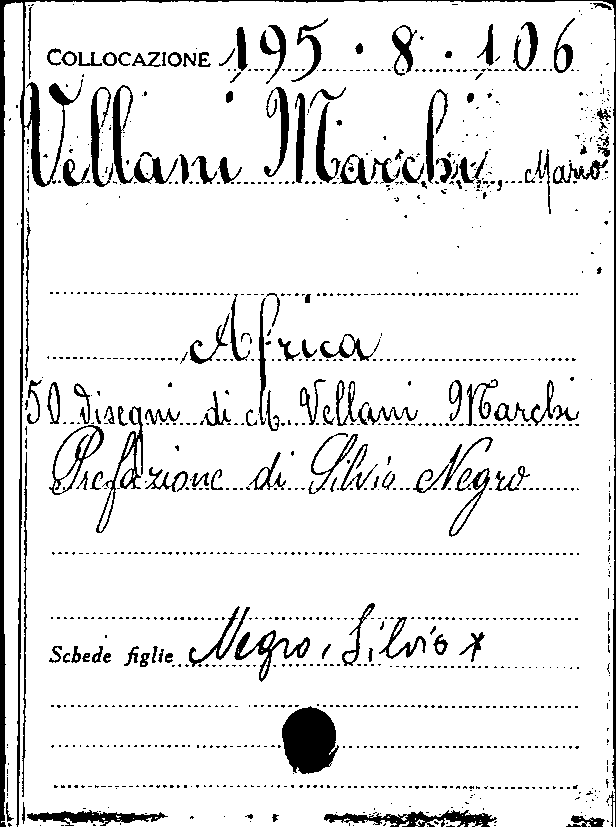 COLLOCAZIONE 195 · 8 · 106
Vellani Marchi, Mario
Africa
50 disegni di M. Vellani Marchi
Prefazione di Silvio Negro
Schede figlie Negro, Silvio *